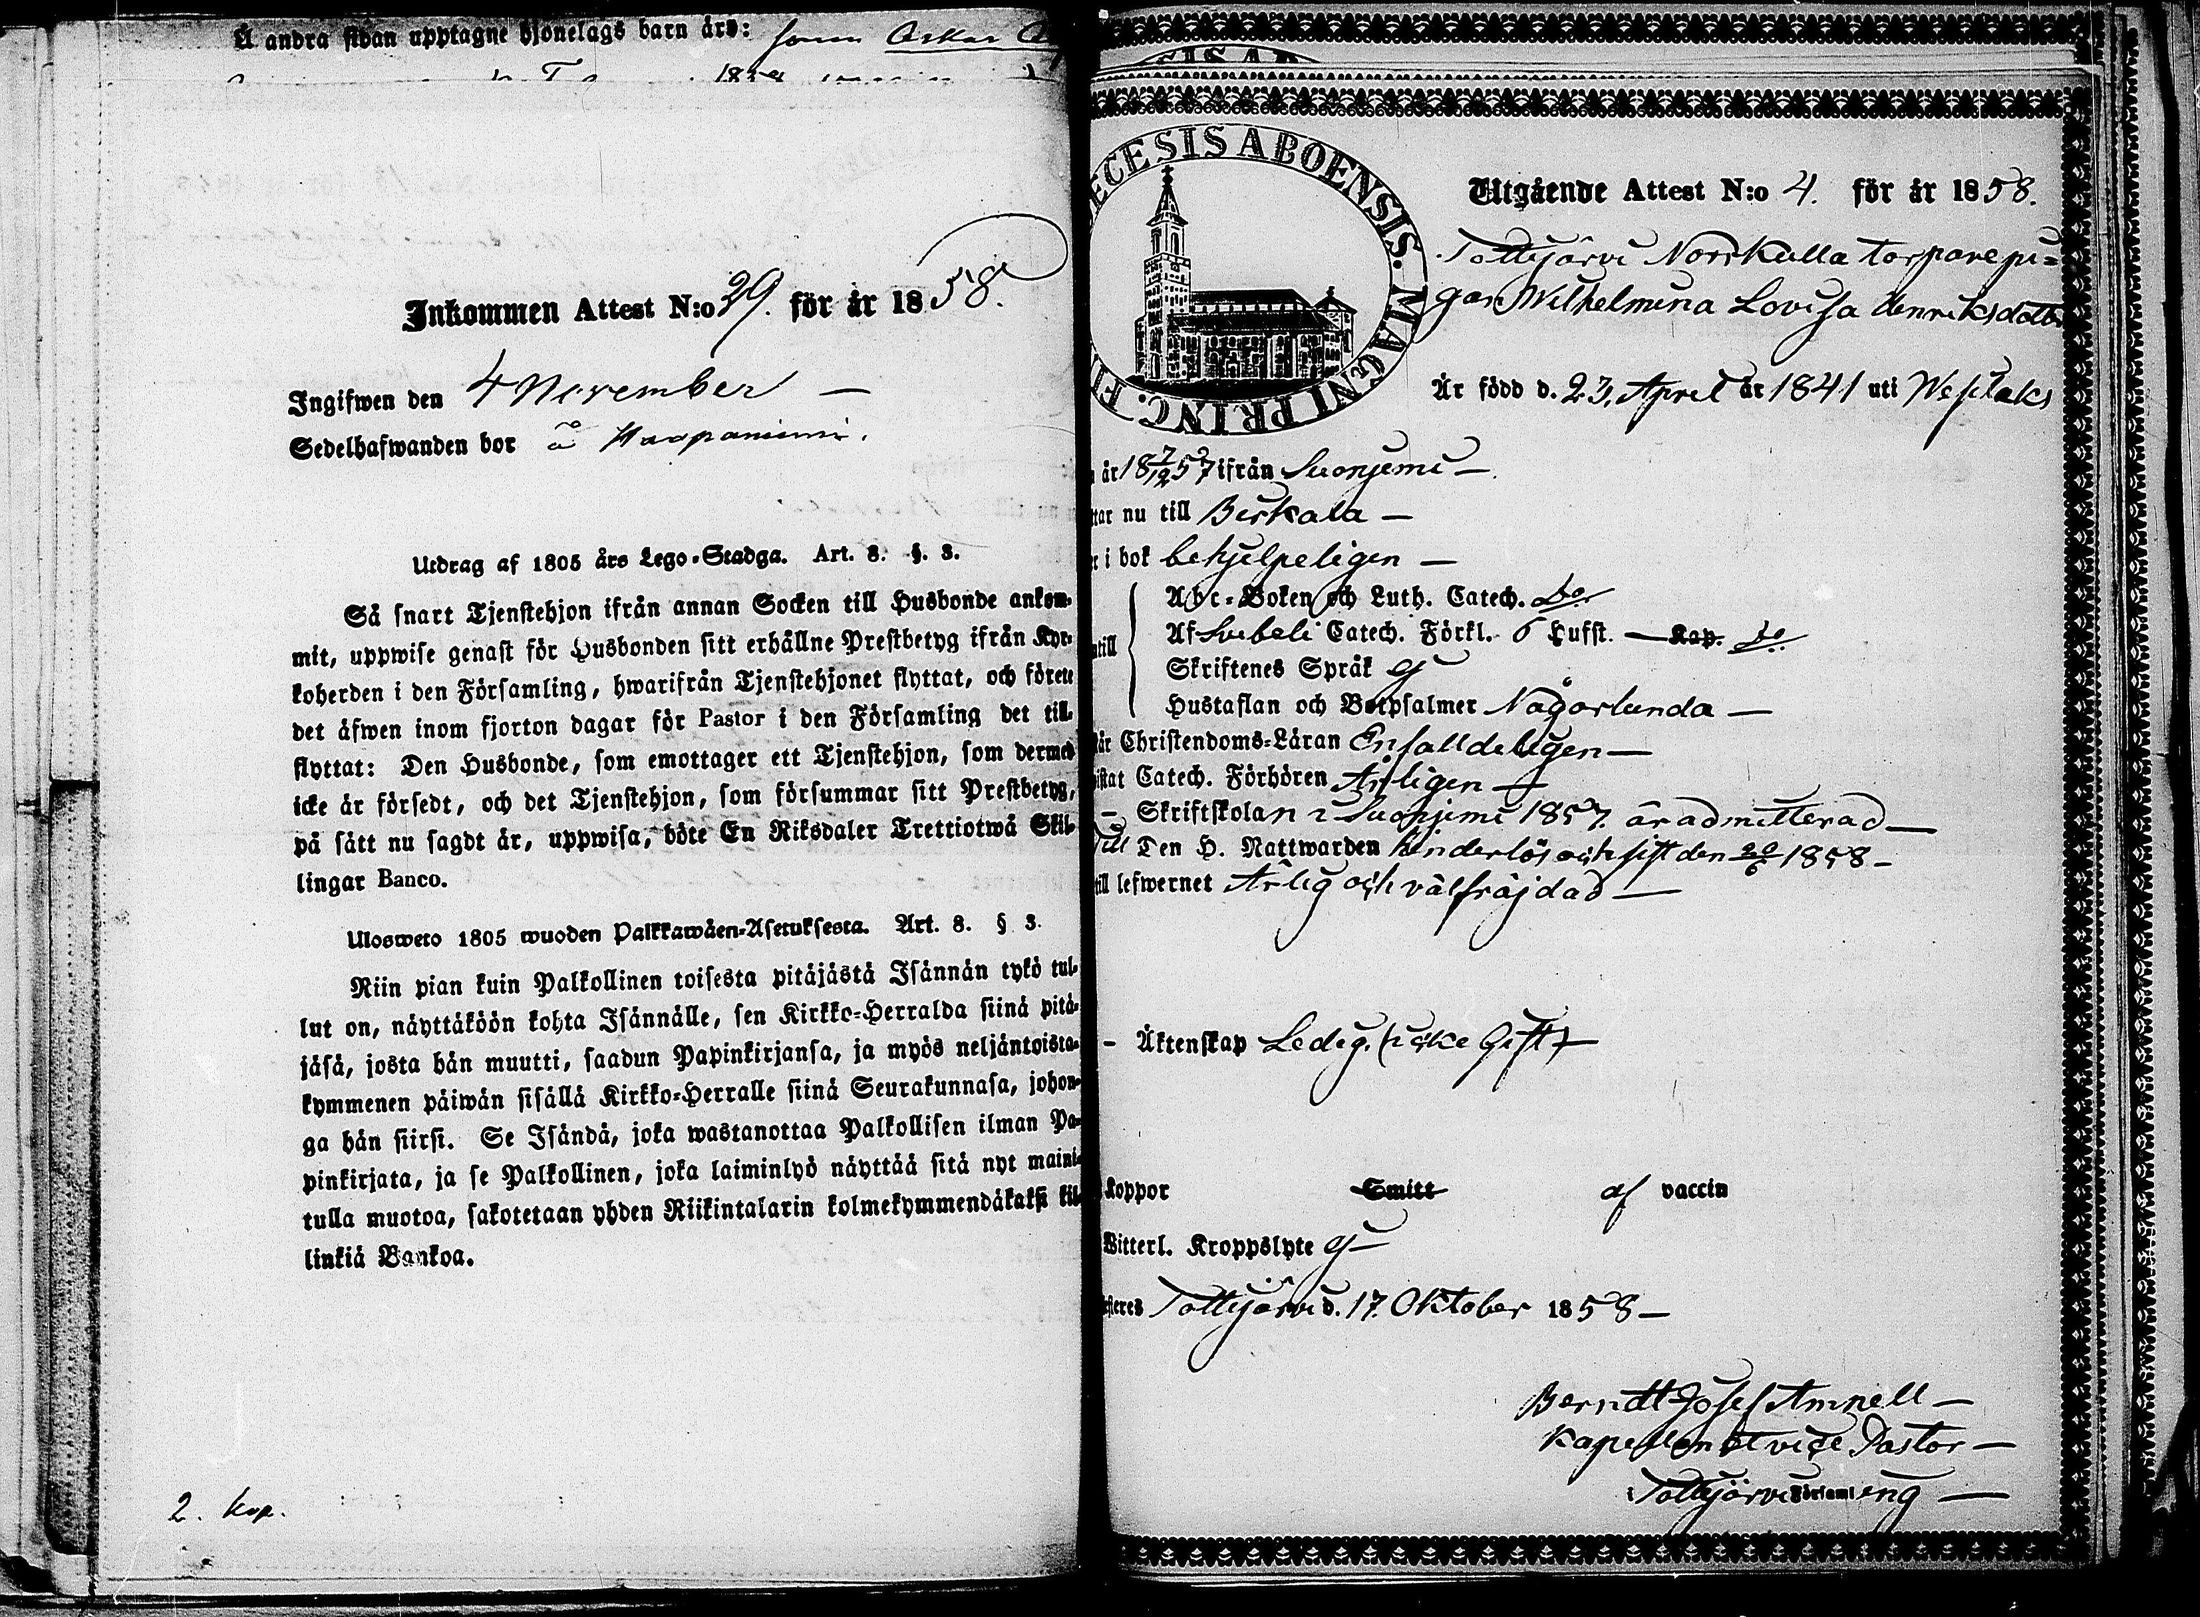 Å andra sidan upptagne hjonelags barn äro: sonen Oskar
Inkommen Attest N:o 39. för år 1858.
Ingifwen den 4 November —
Sedelhafwanden bor å Haapaniemi.
Utdrag af 1805 års Lego-Stadga. Art. 8. §. 3.
Så snart Tjenstehjon ifrån annan Socken till Husbonde ankom-
mit, uppwise genast för Husbonden sitt erhållne Prestbetyg ifrån Kyr-
koherden i den Församling, hwarifrån Tjenstehjonet flyttat, och förete
det äfwen inom fjorton dagar för Pastor i den Församling det till-
flyttat: Den Husbonde, som emottager ett Tjenstehjon, som dermed
icke är försedt, och det Tjenstehjon, som försummar sitt Prestbetyg,
på sätt nu sagdt är, uppwisa, böte En Riksdaler Trettiotwå Skil-
lingar Banco.
Ulosweto 1805 wuoden Palkkawäen-Asetuksesta. Art. 8. § 3.
Niin pian kuin Palkollinen toisesta pitäjästä Isännän tykö tul-
lut on, näyttäköön kohta Isännälle, sen Kirkko-Herralda siinä pitä-
jäsä, josta hän muutti, saadun Papinkirjansa, ja myös neljäntoista-
kymmenen päiwän sisällä Kirkko-Herralle siinä Seurakunnasa, johon-
ga hän siirsi. Se Isändä, joka wastanottaa Palkollisen ilman Pa-
pinkirjata, ja se Palkollinen, joka laiminlyö näyttää sitä nyt maini-
tulla muotoa, sakotetaan yhden Riikintalarin kolmekymmendäkaksi kil-
linkiä Bankoa.
2. kop.
ECESIS ABOENSIS. MAGNI PRINC. FI
Utgående Attest N:o 4. för år 1858.
Tottijärvi Norrkulla torparepi=
gan Wilhelmina Lovisa Henriksdotter
Är född d. 23. April år 1841 uti Wesilaks
år 18 7/12 57 ifrån Suonjemi —
tar nu till Birkala —
r i bok behjelpeligen —
till Abc-Boken och Luth. Catech. do
Af Svebeli Catech. Förkl. 6 Hufst. — Kap. do
Skriftenes Språk ej
Hustaflan och Botpsalmer Någorlunda —
år Christendoms-Läran Enfalldeligen —
istat Catech. Förhören Årligen —
– Skriftskolan i Suonjemi 1857. är admitterad —
Till Den H. Nattwarden hinderlös och sist den 20/6 1858 –
till lefwernet Ärlig och välfräjdad —
– Äktenskap Ledig. (icke Gift) —
Koppor Smitt af vaccin
Witterl. Kroppslyte ej —
steres Tottijärvi d. 17. Oktober 1858 —
Berndt Josef Amnell —
Kapellan et vice Pastor —
i Tottijärvi Församling —